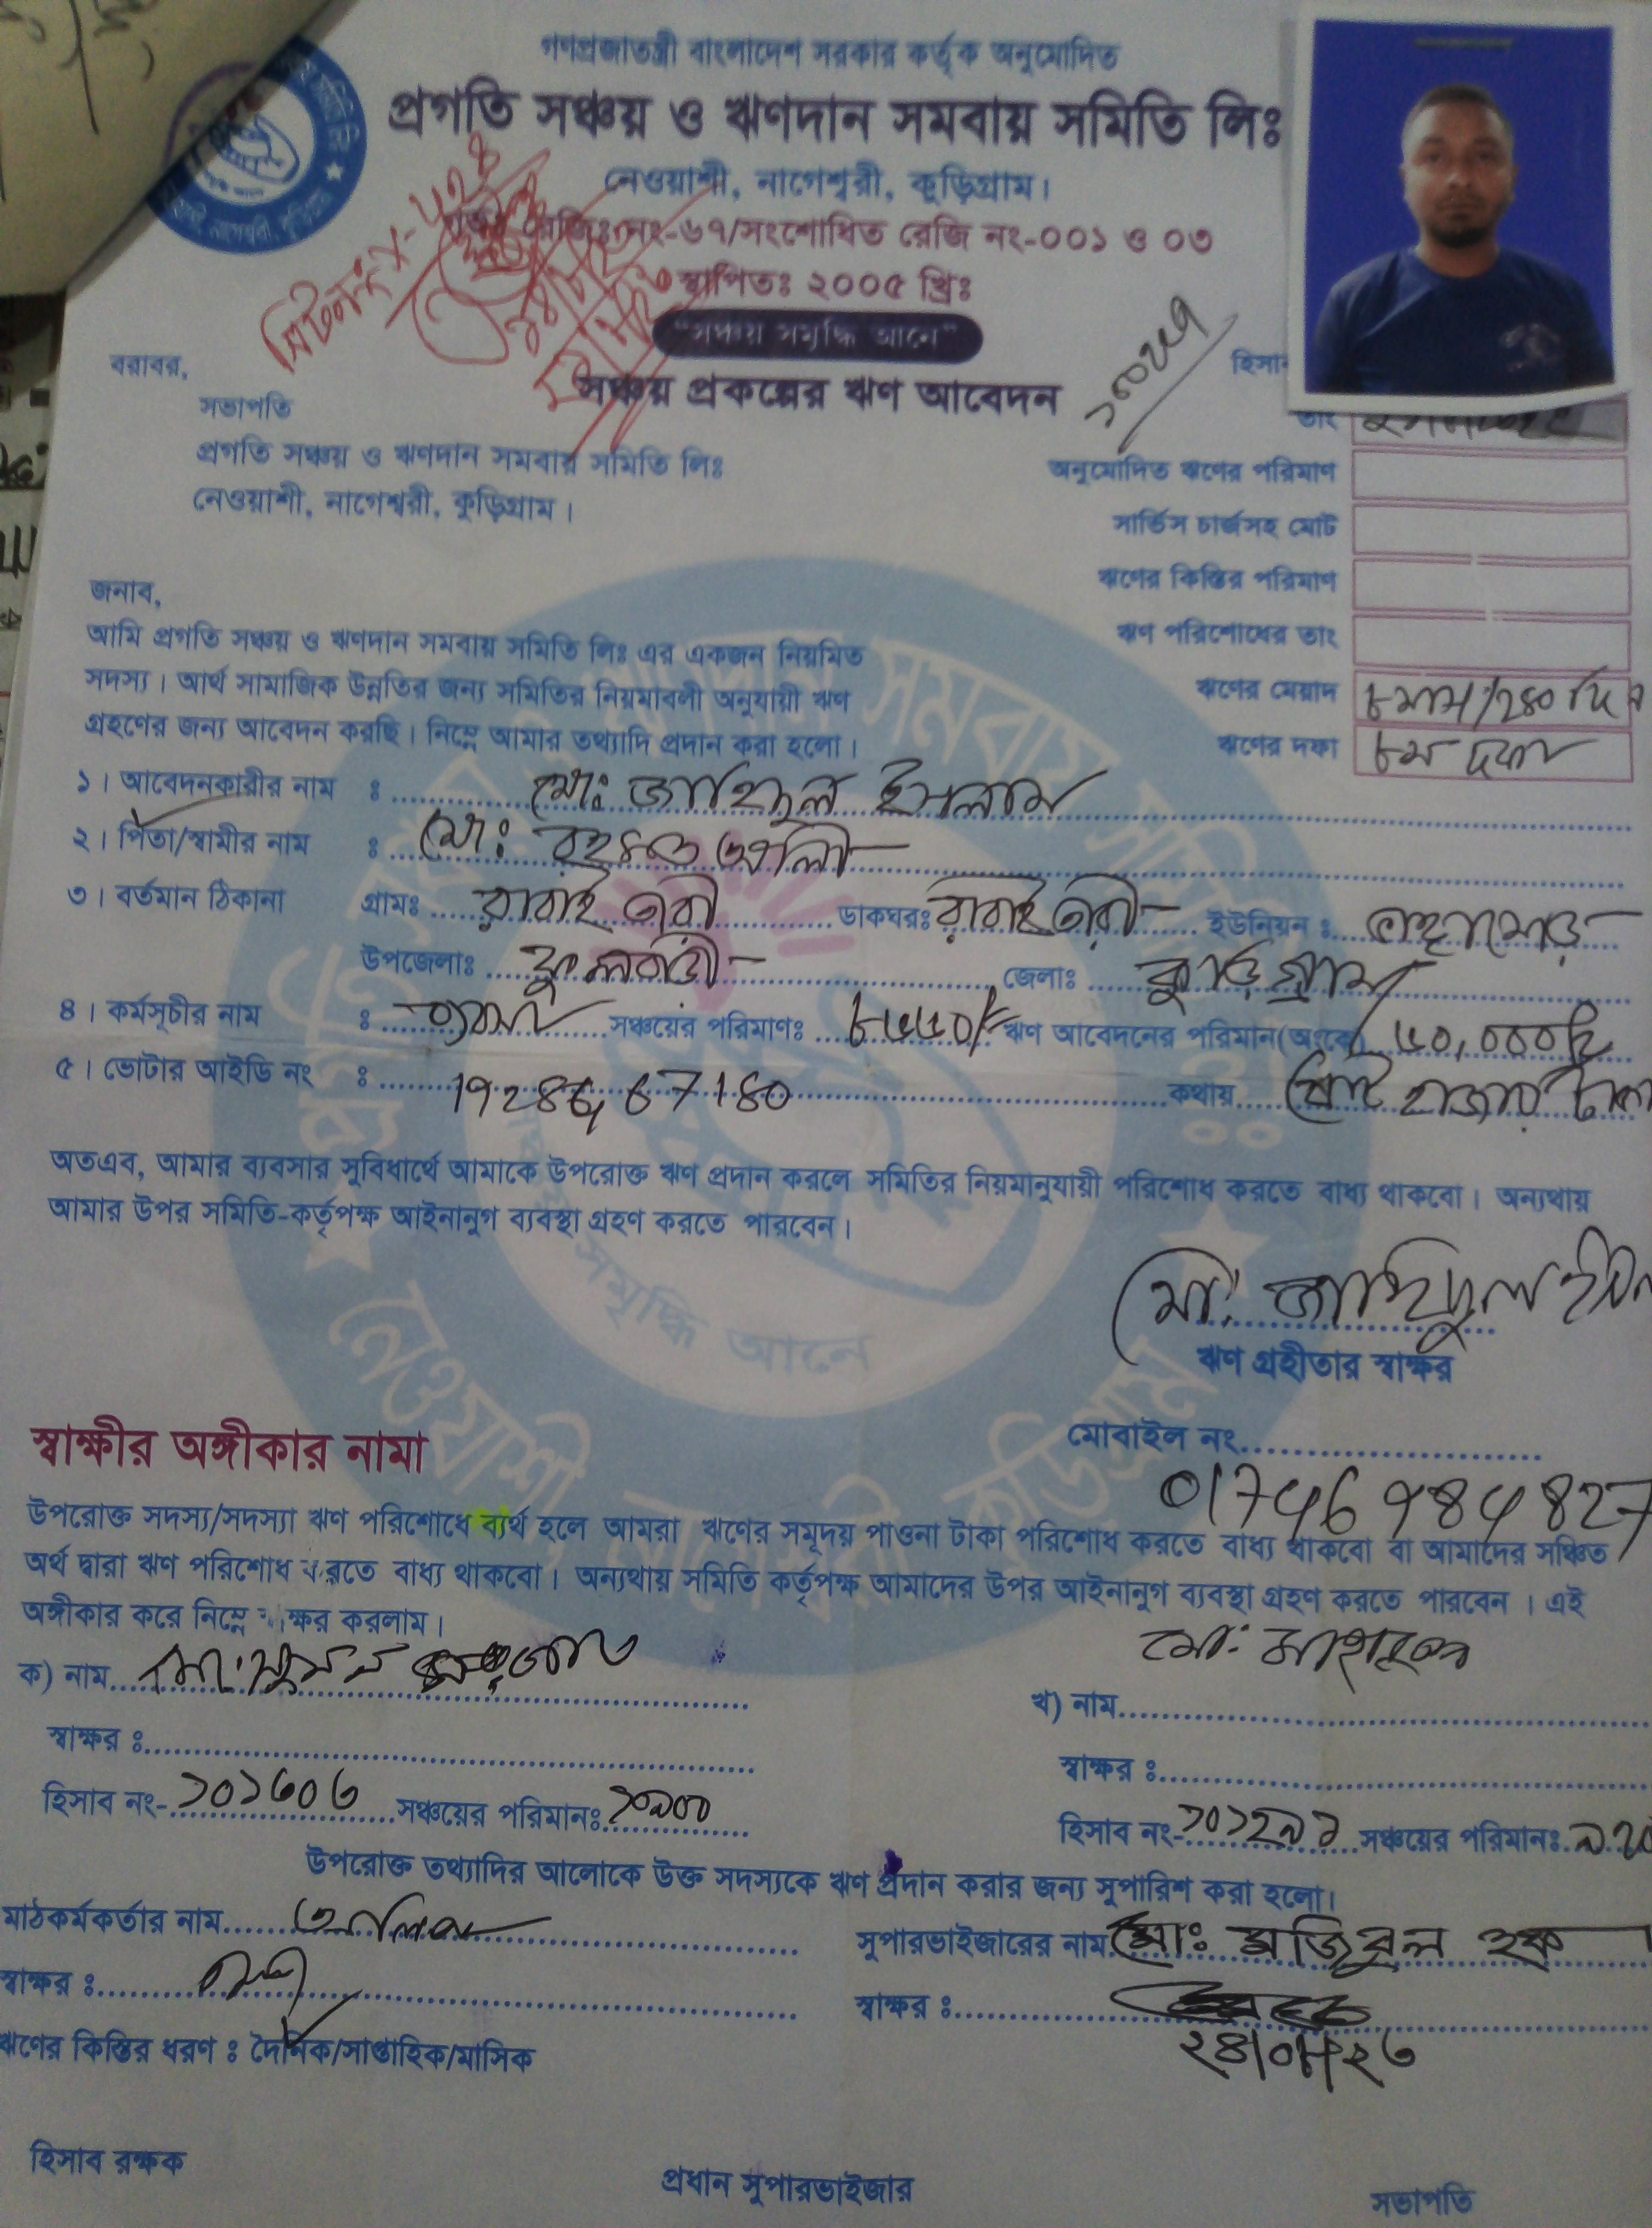 গণপ্রজাতন্ত্রী বাংলাদেশ সরকার কর্তৃক অনুমোদিত
প্রগতি সঞ্চয় ও ঋণদান সমবায় সমিতি লিঃ
নেওয়াশী, নাগেশ্বরী, কুড়িগ্রাম।
রেজিঃ নং-৬৭/সংশোধিত রেজি নং-০০১ ও ০৩
স্থাপিতঃ ২০০৫ খ্রিঃ
"সঞ্চয় সমৃদ্ধি আনে"
সঞ্চয় প্রকল্পের ঋণ আবেদন
বরাবর,
সভাপতি
প্রগতি সঞ্চয় ও ঋণদান সমবায় সমিতি লিঃ
নেওয়াশী, নাগেশ্বরী, কুড়িগ্রাম।
তাং
অনুমোদিত ঋণের পরিমাণ
সার্ভিস চার্জসহ মোট
ঋণের কিস্তির পরিমাণ
ঋণ পরিশোধের তাং
ঋণের মেয়াদ ৮ মাস/২৪০ দিন
ঋণের দফা ৮ম দফা
জনাব,
আমি প্রগতি সঞ্চয় ও ঋণদান সমবায় সমিতি লিঃ এর একজন নিয়মিত
সদস্য। আর্থ সামাজিক উন্নতির জন্য সমিতির নিয়মাবলী অনুযায়ী ঋণ
গ্রহণের জন্য আবেদন করছি। নিম্নে আমার তথ্যাদি প্রদান করা হলো।
১। আবেদনকারীর নাম : মোঃ জাহিদুল ইসলাম
২। পিতা/স্বামীর নাম : মোঃ আলী
৩। বর্তমান ঠিকানা গ্রামঃ রাবাইতারী ডাকঘরঃ রাবাইতারী ইউনিয়ন : ভাঙ্গামোড়
উপজেলাঃ ফুলবাড়ী জেলাঃ কুড়িগ্রাম
৪। কর্মসূচীর নাম : ব্যবসা সঞ্চয়ের পরিমাণঃ ৮৬৬০/= ঋণ আবেদনের পরিমান(অংকে) ৬০,০০০/=
৫। ভোটার আইডি নং : কথায় ষাট হাজার টাকা
অতএব, আমার ব্যবসার সুবিধার্থে আমাকে উপরোক্ত ঋণ প্রদান করলে সমিতির নিয়মানুযায়ী পরিশোধ করতে বাধ্য থাকবো। অন্যথায়
আমার উপর সমিতি-কর্তৃপক্ষ আইনানুগ ব্যবস্থা গ্রহণ করতে পারবেন।
মো: জাহিদুল ইসলাম
ঋণ গ্রহীতার স্বাক্ষর
স্বাক্ষীর অঙ্গীকার নামা
মোবাইল নং
01746984827
উপরোক্ত সদস্য/সদস্যা ঋণ পরিশোধে ব্যর্থ হলে আমরা ঋণের সমূদয় পাওনা টাকা পরিশোধ করতে বাধ্য থাকবো বা আমাদের সঞ্চিত
অর্থ দ্বারা ঋণ পরিশোধ করতে বাধ্য থাকবো। অন্যথায় সমিতি কর্তৃপক্ষ আমাদের উপর আইনানুগ ব্যবস্থা গ্রহণ করতে পারবেন। এই
অঙ্গীকার করে নিম্নে স্বাক্ষর করলাম।
ক) নাম মোঃ সুমন
খ) নাম মোঃ
স্বাক্ষর :
স্বাক্ষর :
হিসাব নং- ১০১৬০৬ সঞ্চয়ের পরিমানঃ ১০৯০০
হিসাব নং- ১০১২৯১ সঞ্চয়ের পরিমানঃ
উপরোক্ত তথ্যাদির আলোকে উক্ত সদস্যকে ঋণ প্রদান করার জন্য সুপারিশ করা হলো।
মাঠকর্মকর্তার নাম
সুপারভাইজারের নাম মোঃ মজিবুল হক
স্বাক্ষর :
স্বাক্ষর :
ঋণের কিস্তির ধরণ : দৈনিক/সাপ্তাহিক/মাসিক
হিসাব রক্ষক
প্রধান সুপারভাইজার
সভাপতি